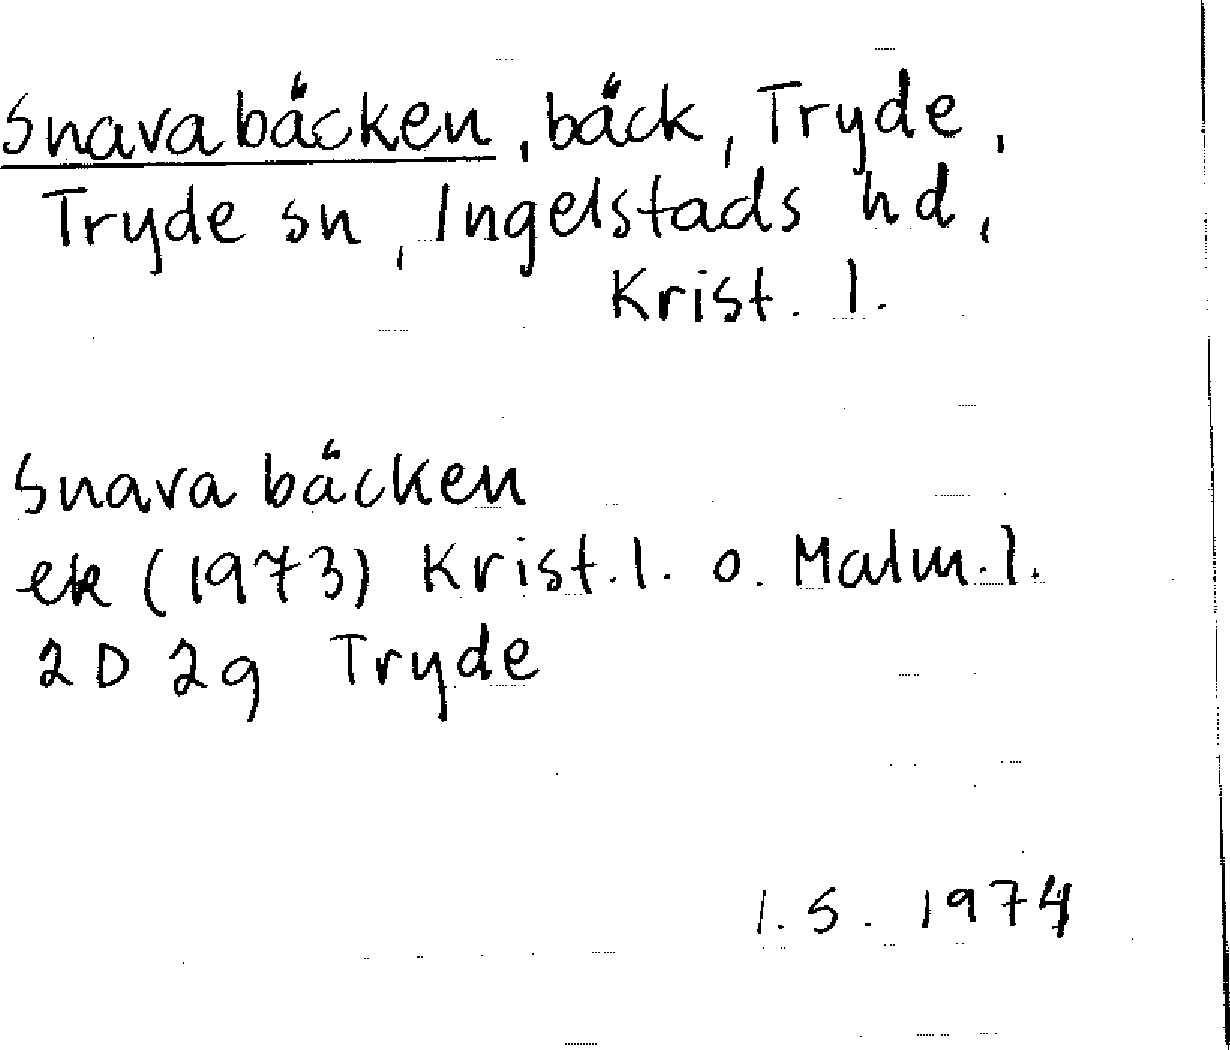 Snavabäcken, bäck, Tryde,
Tryde sn, Ingelstads hd,
Krist. l.
Snavabäcken
ek (1973) Krist.l. o. Malm.l.
2D 2g Tryde
I.S. 1974